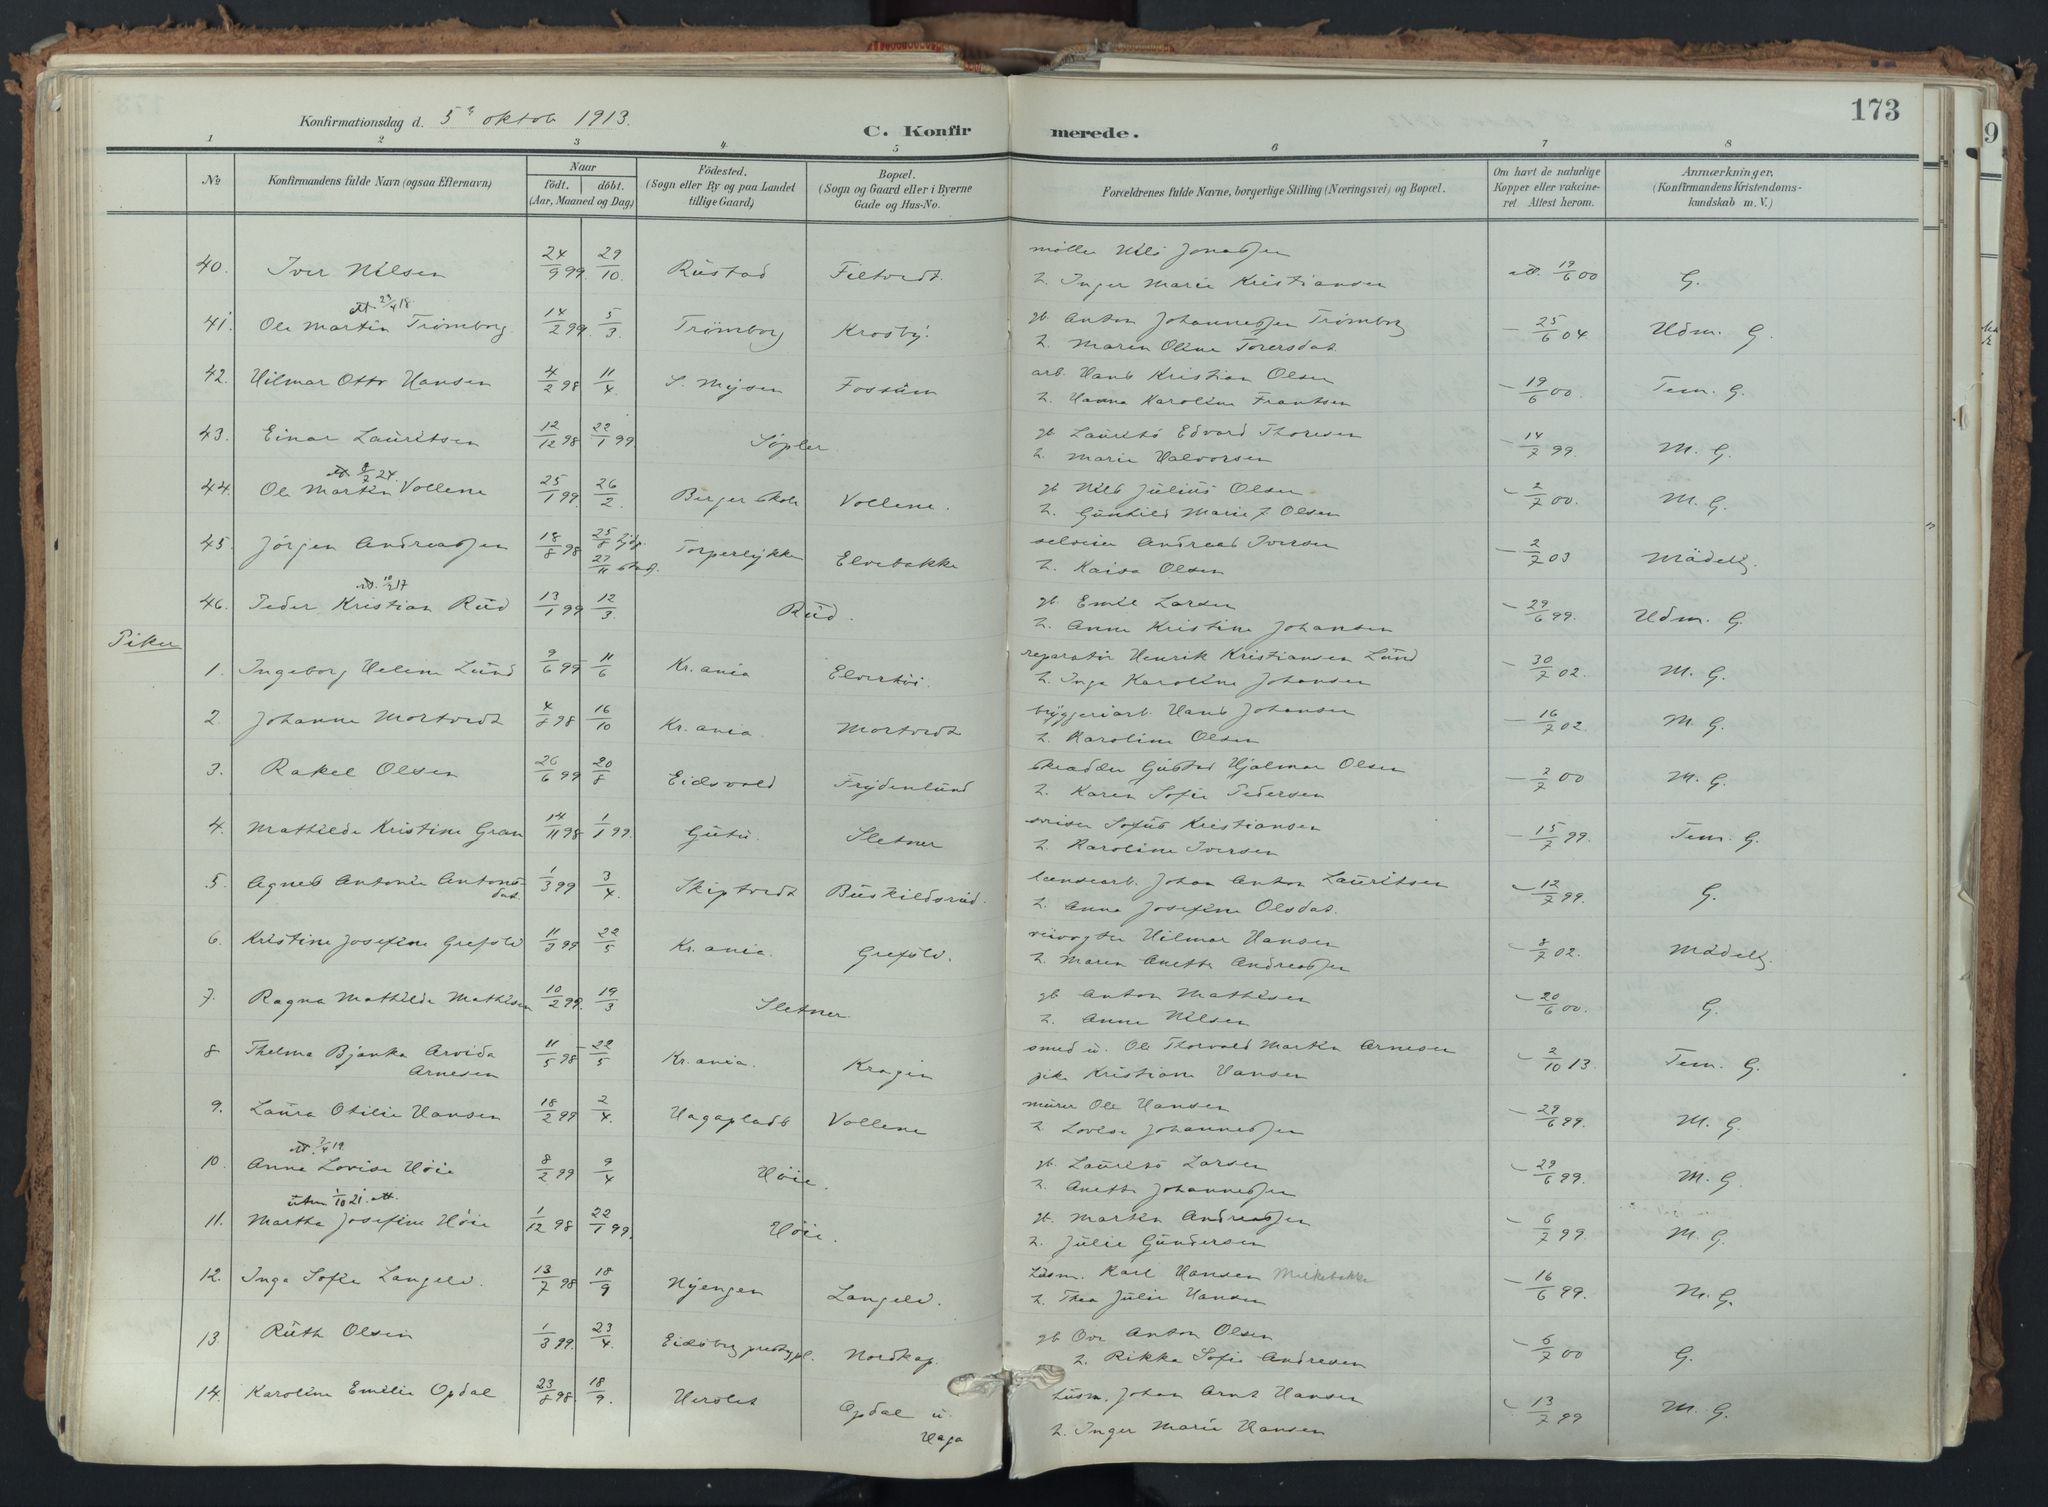 173
Konfirmationsdag d. 5te oktob 1913.
C. Konfirmerede.
1 2 3 4 5 6 7 8
No
Konfirmandens fulde Navn (ogsaa Efternavn)
Naar
födt. döbt.
(Aar, Maaned og Dag)
Födested.
(Sogn eller By og paa Landet
tillige Gaard)
Bopæl.
(Sogn og Gaard eller i Byerne
Gade og Hus-No.
Forældrenes fulde Navne, borgerlige Stilling (Næringsvei) og Bopæl.
Om havt de naturlige
Kopper eller vakcine-
ret. Attest herom.
Anmærkninger,
(Konfirmandens Kristendoms-
kundskab m. V.)
40. Iver Nilsen 24/9 99 29/10 Rustad Filtvedt. møller Nils Jonassen att. 19/6 00 G.
h. Inger Marie Kristiansen
att. 23/4 18
41. Ole Martin Trömborg 14/2 99 5/3 Trömborg Krosby. gb. Anton Johannessen Trömborg – 25/6 04 Udm. G.
h. Maren Oline Torersdat.
42. Hilmar Otto Hansen 4/2 98 11/4 S. Mysen Fossum arb. Hans Kristian Olsen – 19/6 00. Tem. G.
h. Hanna Karoline Frantsen
43. Einar Lauritsen 12/12 98 22/1 99 Söpler gb. Laurits Edvard Thoresen – 14/7 99. M. G.
h. Marie Halvorsen
att. 24.
44. Ole Martin Vollene 25/1 99 26/2 Berger skole Vollene. gb. Nils Julius Olsen – 2/7 00. M. G.
h. Gunhild Marie J Olsen
45. Jörgen Andreassen 18/8 98 25/8 hjdp. 27/11 stadf. Torperlykken Elvebakke selveier Andreas Iversen – 2/7 03 Mådelig.
h. Kaisa Olsen
att. 10/2 17
46. Peder Kristian Rud 13/1 99 12/3 Rud. gb. Emil Larsen – 29/6 99. Udm. G.
h. Anne Kristine Johansen
Piker
1. Ingeborg Helene Lund 9/6 99 – 11/6 Kr.ania Elverhöi. reparatör Henrik Kristiansen Lund – 30/7 02. M. G.
h. Inga Karoline Johansen
2. Johanne Mortvedt 4/8 98 16/10 Kr.ania. Mortvedt bryggeriarb. Hans Johansen – 16/7 02. M. G.
h. Karoline Olsen
3. Rakel Olsen 26/6 99 20/8 Eidsvold Frydenlund skrædder Gustav Hjalmar Olsen – 2/7 00 M. G.
h. Karen Sofie Pedersen
4. Mathilde Kristine Gran 14/11 98 1/1 99. Gutu. Sletner sveiser Sofus Kristiansen – 15/7 99. Tem. G.
h. Karoline Iversen
5. Agnes Antonie Antons-
dat. 1/3 99 3/4 Skiptvedt Buskildsrud. lænsearb. Johan Anton Lauritsen – 12/7 99. G.
h. Anna Josefine Olsdat.
6. Kristine Josefine Grefsli 11/3 99 22/5 Kr.ania. Grefsli. veivogter Hilmar Hansen – 8/7 02. Mådelig.
h. Maren Anette Andreassen
7. Ragna Mathilde Mathisen 10/2 99. 19/3 Sletner. gb. Anton Mathisen – 20/6 00. G.
h. Anne Nilsen
8 Thelma Bjanka Arvida
Arnesen 11/5 98 – 22/5 Kr.ania. Kragen smed u. Ole Thorvald Martin Arnesen – 2/10 13. Tem. G.
pike Kristiane Hansen
9. Laura Otilie Hansen 18/2 99 2/4 Hagaplads Vollene murer Ole Hansen – 29/6 99. M. G.
h. Lovise Johannessen
att. 7/4 19
10. Anna Lovise Höie 8/2 99 9/4 Höie. gb. Laurits Larsen – 29/6 99. M. G.
h. Anette Johannessen
uten 1/10 21. att.
11. Martha Josefine Höie 1/12 98 22/1 99. Höie. gb. Martin Andreassen – 6/7 99. M. G.
h. Julie Gundersen
12. Inga Sofie Langeli. 13/7 98 18/9 Nyengen Langeli. Husm. Karl Hansen Melkebakke – 16/6 99. M. G.
h. Thea Julie Hansen
13. Ruth Olsen 1/3 99. 23/4 Eidsberg prestegpl. Nordkap. gb Ove Anton Olsen – 6/7 00 G.
h. Rikka Sofie Andresen
14. Karoline Emilie Opdal 23/8 98. 18/9. Herslet Opdal u. Haga Husm. Johan Arnt Hansen – 13/7 99 M. G.
h. Inger Marie Hansen